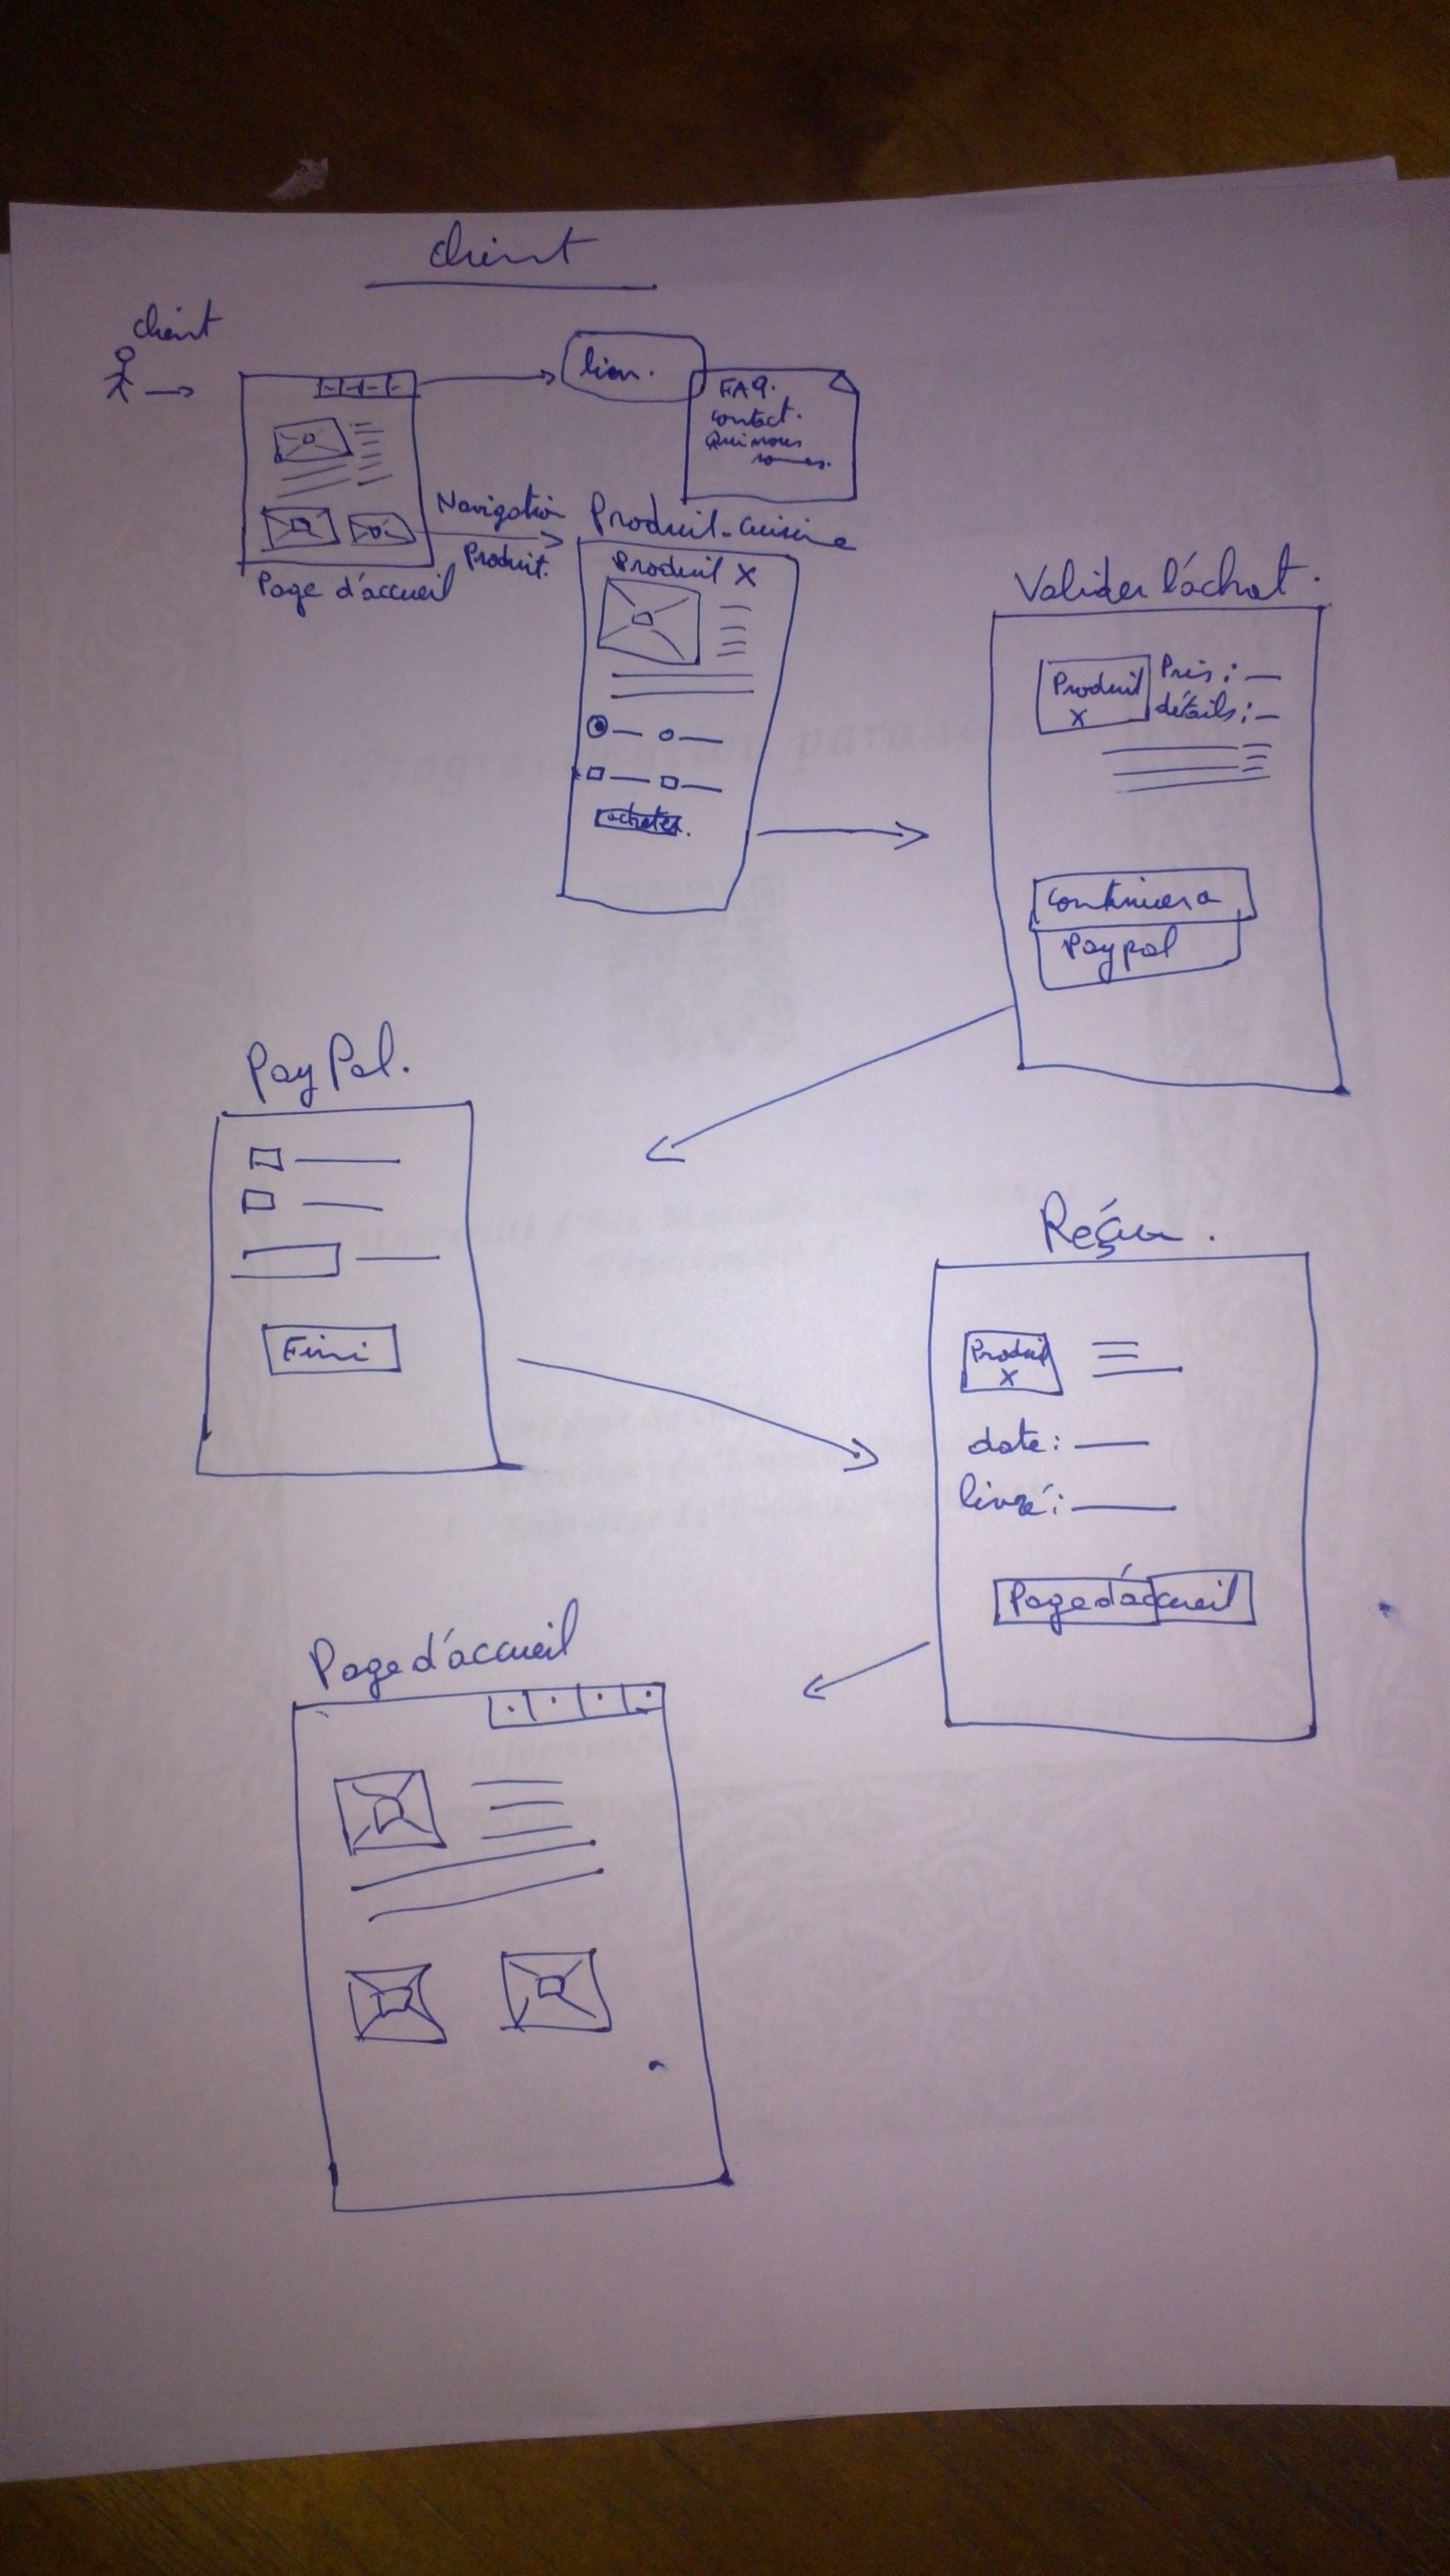 client
client
lien.
FAQ.
contact.
Qui nous
sommes.
Navigation
Produit.
Page d'accueil
Produit-cuisine
Produit X
acheter.
Valider l'achat.
Produit
X
Prix : _
détails : _
Continuer a
Paypal
PayPal.
Fini
Reçu.
Produit
X
date : _
livré : _
Page d'accueil
Page d'accueil